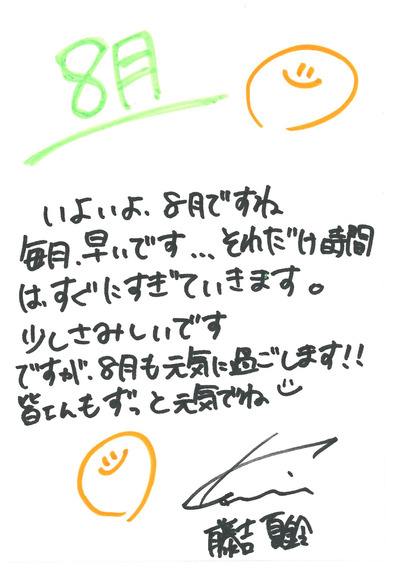 8月
いよいよ、8月ですね
毎月、早いです...それだけ時間
は、すぐにすぎていきます。
少しさみしいです
ですが、8月も元気に過ごします!!
皆さんもずっと元気でね
藤吉 夏鈴